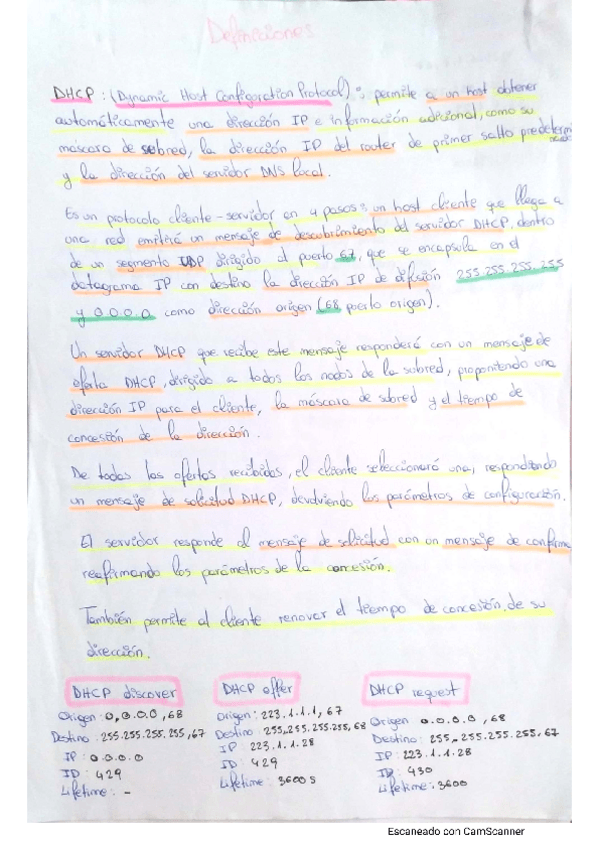 Definiciones
DHCP : (Dynamic Host Configuration Protocol) : permite a un host obtener
automáticamente una dirección IP e información adicional, como su
máscara de subred, la dirección IP del router de primer salto predetermi
y la dirección del servidor DNS local.
Es un protocolo cliente-servidor en 4 pasos: un host cliente que llega a
una red emitirá un mensaje de descubrimiento del servidor DHCP, dentro
de un segmento UDP dirigido al puerto 67, que se encapsula en el
datagrama IP con destino la dirección IP de difusión 255.255.255.255
y 0.0.0.0 como dirección origen (68 puerto origen).
Un servidor DHCP que recibe este mensaje responderá con un mensaje de
oferta DHCP, dirigido a todos los nodos de la subred, proponiendo una
dirección IP para el cliente, la máscara de subred y el tiempo de
concesión de la dirección.
De todas las ofertas recibidas, el cliente seleccionará una, respondiendo
un mensaje de solicitud DHCP, devolviendo los parámetros de configuración.
El servidor responde al mensaje de solicitud con un mensaje de confirma
reafirmando los parámetros de la concesión.
También permite al cliente renovar el tiempo de concesión de su
dirección.
DHCP discover DHCP offer DHCP request
Origen: 0.0.0.0, 68 Origen: 223.1.1.1, 67 Origen 0.0.0.0, 68
Destino: 255.255.255.255, 67 Destino: 255.255.255.255, 68 Destino: 255.255.255.255, 67
IP: 0.0.0.0 IP 223.1.1.28 IP: 223.1.1.28
ID: 429 ID 429 ID: 430
Lifetime: - Lifetime: 3600 s Lifetime: 3600
Escaneado con CamScanner